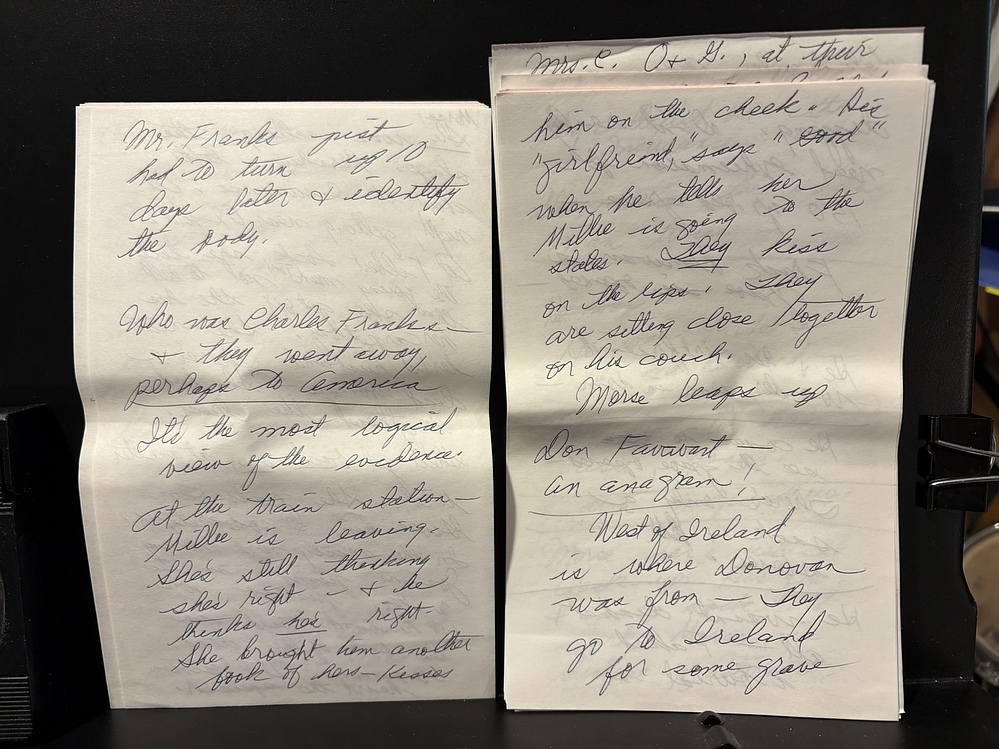 Mr. Franks just
had to turn up 10
days later & identify
the body.
Who was Charles Franks —
& they went away,
perhaps to America
It's the most logical
view of the evidence.
At the train station —
Millie is leaving.
She's still thinking
she's right — & he
thinks he's right.
She brought him another
book of hers — kisses
Mrs. C. O & G., at their
him on the cheek. His
"girlfreind," says "Good"
when he tells her
Millie is going to the
states. They kiss
on the lips. They
are sitting close together
on his couch.
Morse leaps up
Don Favvart —
an anagram!
West of Ireland
is where Donovan
was from — They
go to Ireland
for some grave